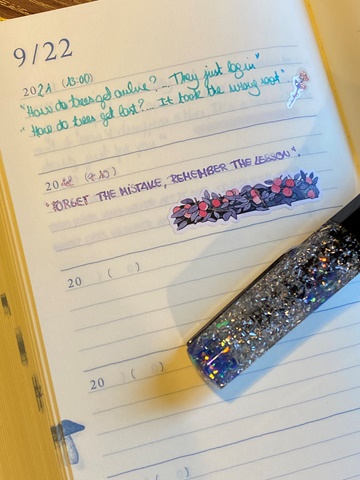 9/22
2021 (13:00)
"How do trees get online?... They just log in"
"How do trees get lost?... It took the wrong root"
20
"FORGET THE MISTAKE, REMEMBER THE LESSON".
20 ( )
20 ( )
( )